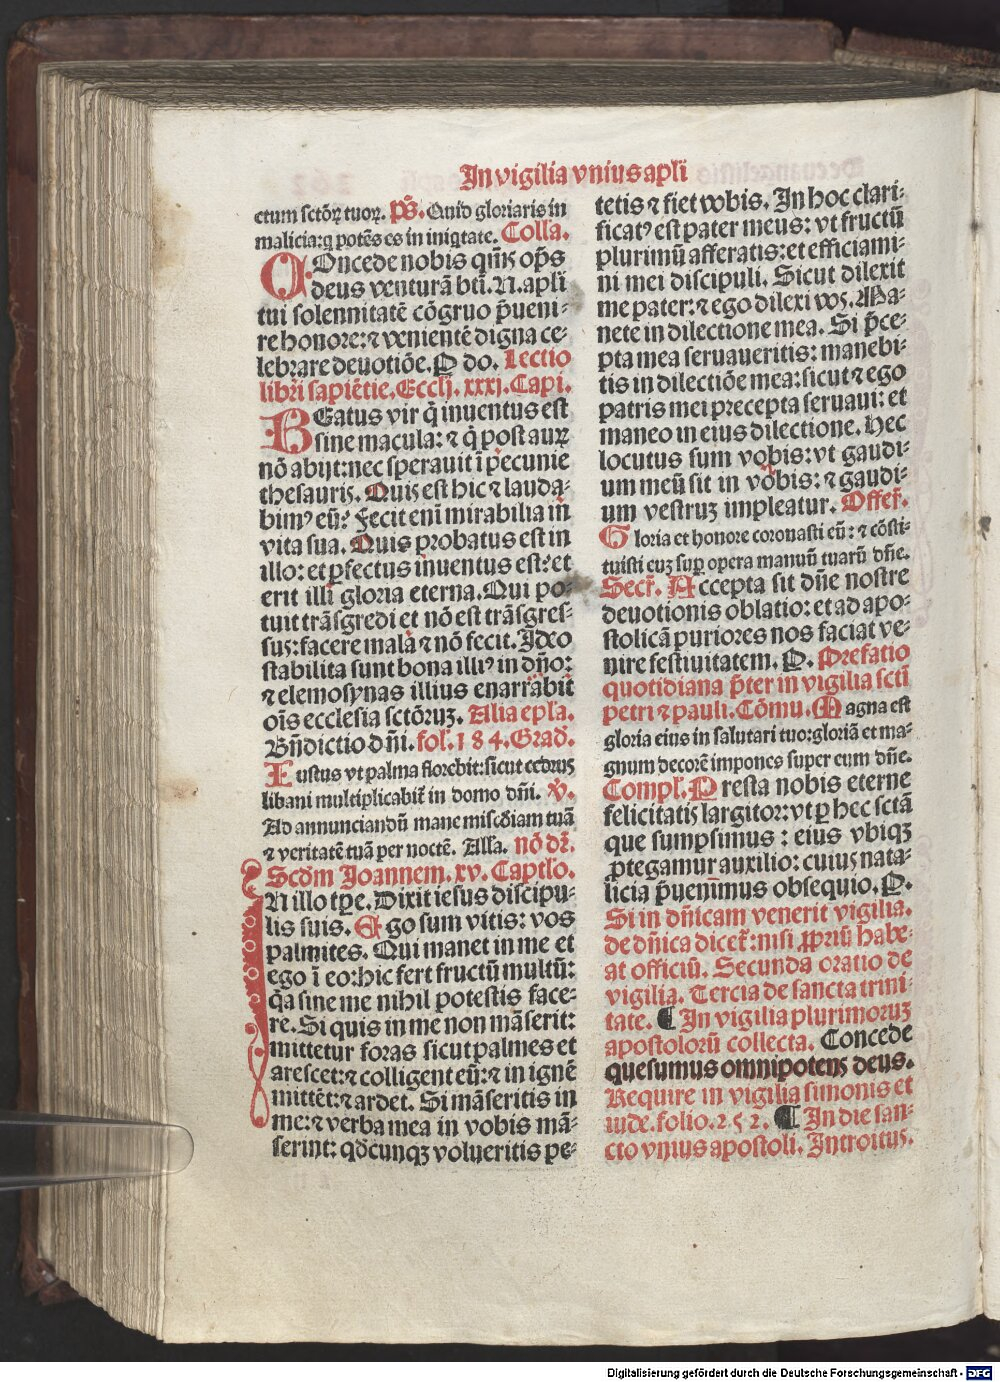 In vigilia vnius apli
ctum sctōꝝ tuoꝝ. p̄s. Quid gloriaris in
malicia: q potēs es in iniqtate. Colla.
COncede nobis qm̄s op̄s
deus venturā bti. N. apli
tui solennitatē cōgruo p̄ueni-
re honore: ⁊ venientē digna ce-
lebrare deuotiōe. P do. Lectio
libri sapiētie. Eccli. xxxj. Capi.
BEatus vir q̄ inuentus est
sine macula: ⁊ q̄ post auꝝ
nō abijt: nec sperauit ī pecunie
thesauris. Quis est hic ⁊ lauda-
bimꝰ eū? Fecit eni mirabilia in
vita sua. Quis probatus est in
illo: et ꝑfectus inuentus est: et
erit illi gloria eterna. Qui po-
tuit trāsgredi et nō est trāsgres-
sus: facere mala ⁊ nō fecit. Ideo
stabilita sunt bona illiꝰ in dn̄o:
⁊ elemosynas illius enarrabit
oīs ecclesia sctōruꝫ. Alia epla.
Bn̄dictio dn̄i. fol. 184. Grad.
Iustus vt palma florebit: sicut cedrus
libani multiplicabit̄ in domo dn̄i. V̄.
Ad annunciandū mane misc̄diam tuā
⁊ veritatē tuā per noctē. Alla. nō dr̄.
Scd̄m Joannem. xv. Captlo.
IN illo tꝑe. Dixit iesus discipu-
lis suis. Ego sum vitis: vos
palmites. Qui manet in me et
ego ī eo: hic fert fructū multū:
q̄a sine me nihil potestis face-
re. Si quis in me non māserit:
mittetur foras sicut palmes et
arescet: ⁊ colligent eū: ⁊ in ignē
mittēt: ⁊ ardet. Si māseritis in
me: ⁊ verba mea in vobis mā-
serint: qd̄cunqꝫ volueritis pe-
tetis ⁊ fiet vobis. In hoc clari-
ficatꝰ est pater meus: vt fructū
plurimū afferatis: et efficiami-
ni mei discipuli. Sicut dilexit
me pater: ⁊ ego dilexi vos. Ma-
nete in dilectione mea. Si p̄ce-
pta mea seruaueritis: manebi-
tis in dilectiōe mea: sicut ⁊ ego
patris mei precepta seruaui: et
maneo in eius dilectione. Hec
locutus sum vobis: vt gaudi-
um meū sit in vobis: ⁊ gaudi-
um vestruꝫ impleatur. Offer̄.
Gloria et honore coronasti eū: ⁊ cōsti-
tuisti euꝫ suꝑ opera manuū tuarū dn̄e.
Secr̄. Accepta sit dn̄e nostre
deuotionis oblatio: et ad apo-
stolicā puriores nos faciat ve-
nire festiuitatem. P. Prefatio
quotidiana p̄ter in vigilia scti
petri ⁊ pauli. Cōmu. Magna est
gloria eius in salutari tuo: gloriā et ma-
gnum decorē impones super eum dn̄e.
Compl. Presta nobis eterne
felicitatis largitor: vt ꝑ hec sctā
que sumpsimus: eius vbiqꝫ
ꝓtegamur auxilio: cuius nata-
licia p̄uenimus obsequio. P.
Si in dn̄icam venerit vigilia.
de dn̄ica dicet̄: nisi ꝓpriū habe-
at officiū. Secunda oratio de
vigilia. Tercia de sancta trini-
tate. ¶ In vigilia plurimoruꝫ
apostolorū collecta. Concede
quesumus omnipotens deus.
Require in vigilia simonis et
iude. folio. 252. ¶ In die san-
cto vnius apostoli. Introitus.
Digitalisierung gefördert durch die Deutsche Forschungsgemeinschaft - DFG